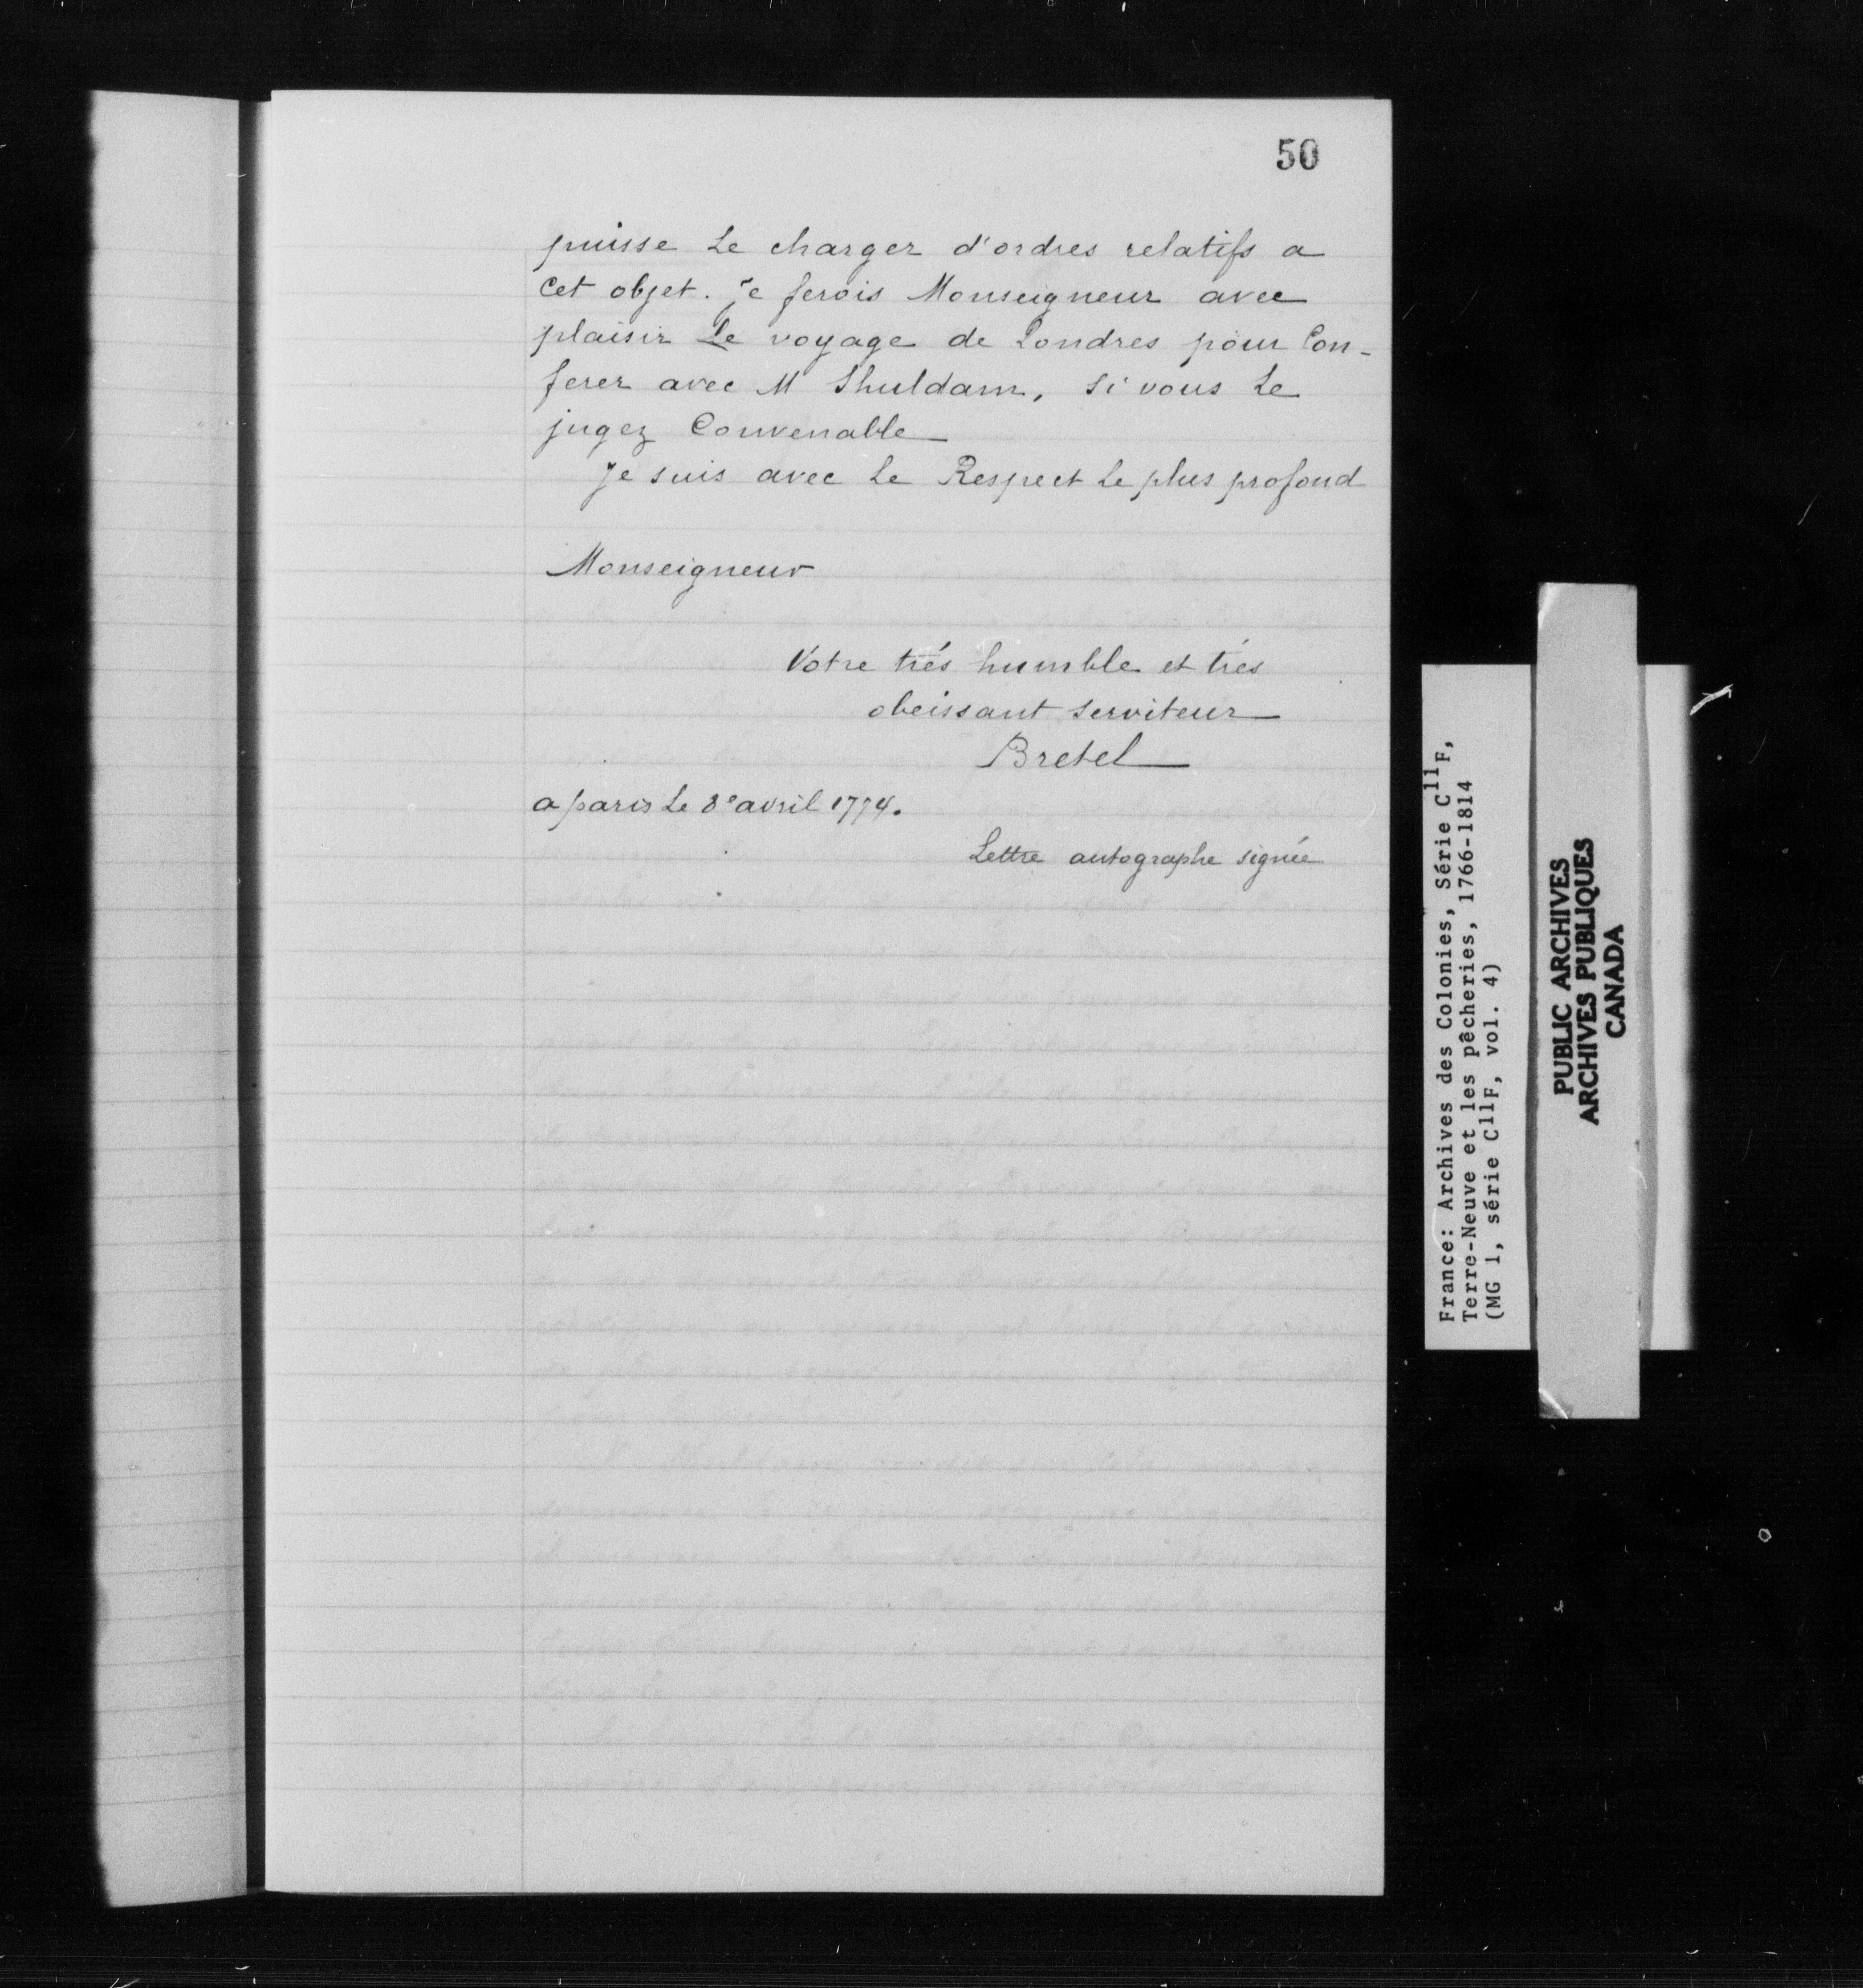 50
puisse Le charger d'ordres relatifs a
Cet objet. Je ferois Monseigneur avec
plaisir Le voyage de Londres pour Con-
ferer avec M Shuldam, Si vous Le
jugez Convenable
Je suis avec Le Respect Le plus profond
Monseigneur
Votre trés humble et trés
obeissant serviteur
Bretel
a paris Le 8e avril 1774.
Lettre autographe signée
France: Archives des Colonies, Série C11F,
Terre-Neuve et les pêcheries, 1766-1814
(MG 1, série C11F, vol. 4)
PUBLIC ARCHIVES
ARCHIVES PUBLIQUES
CANADA